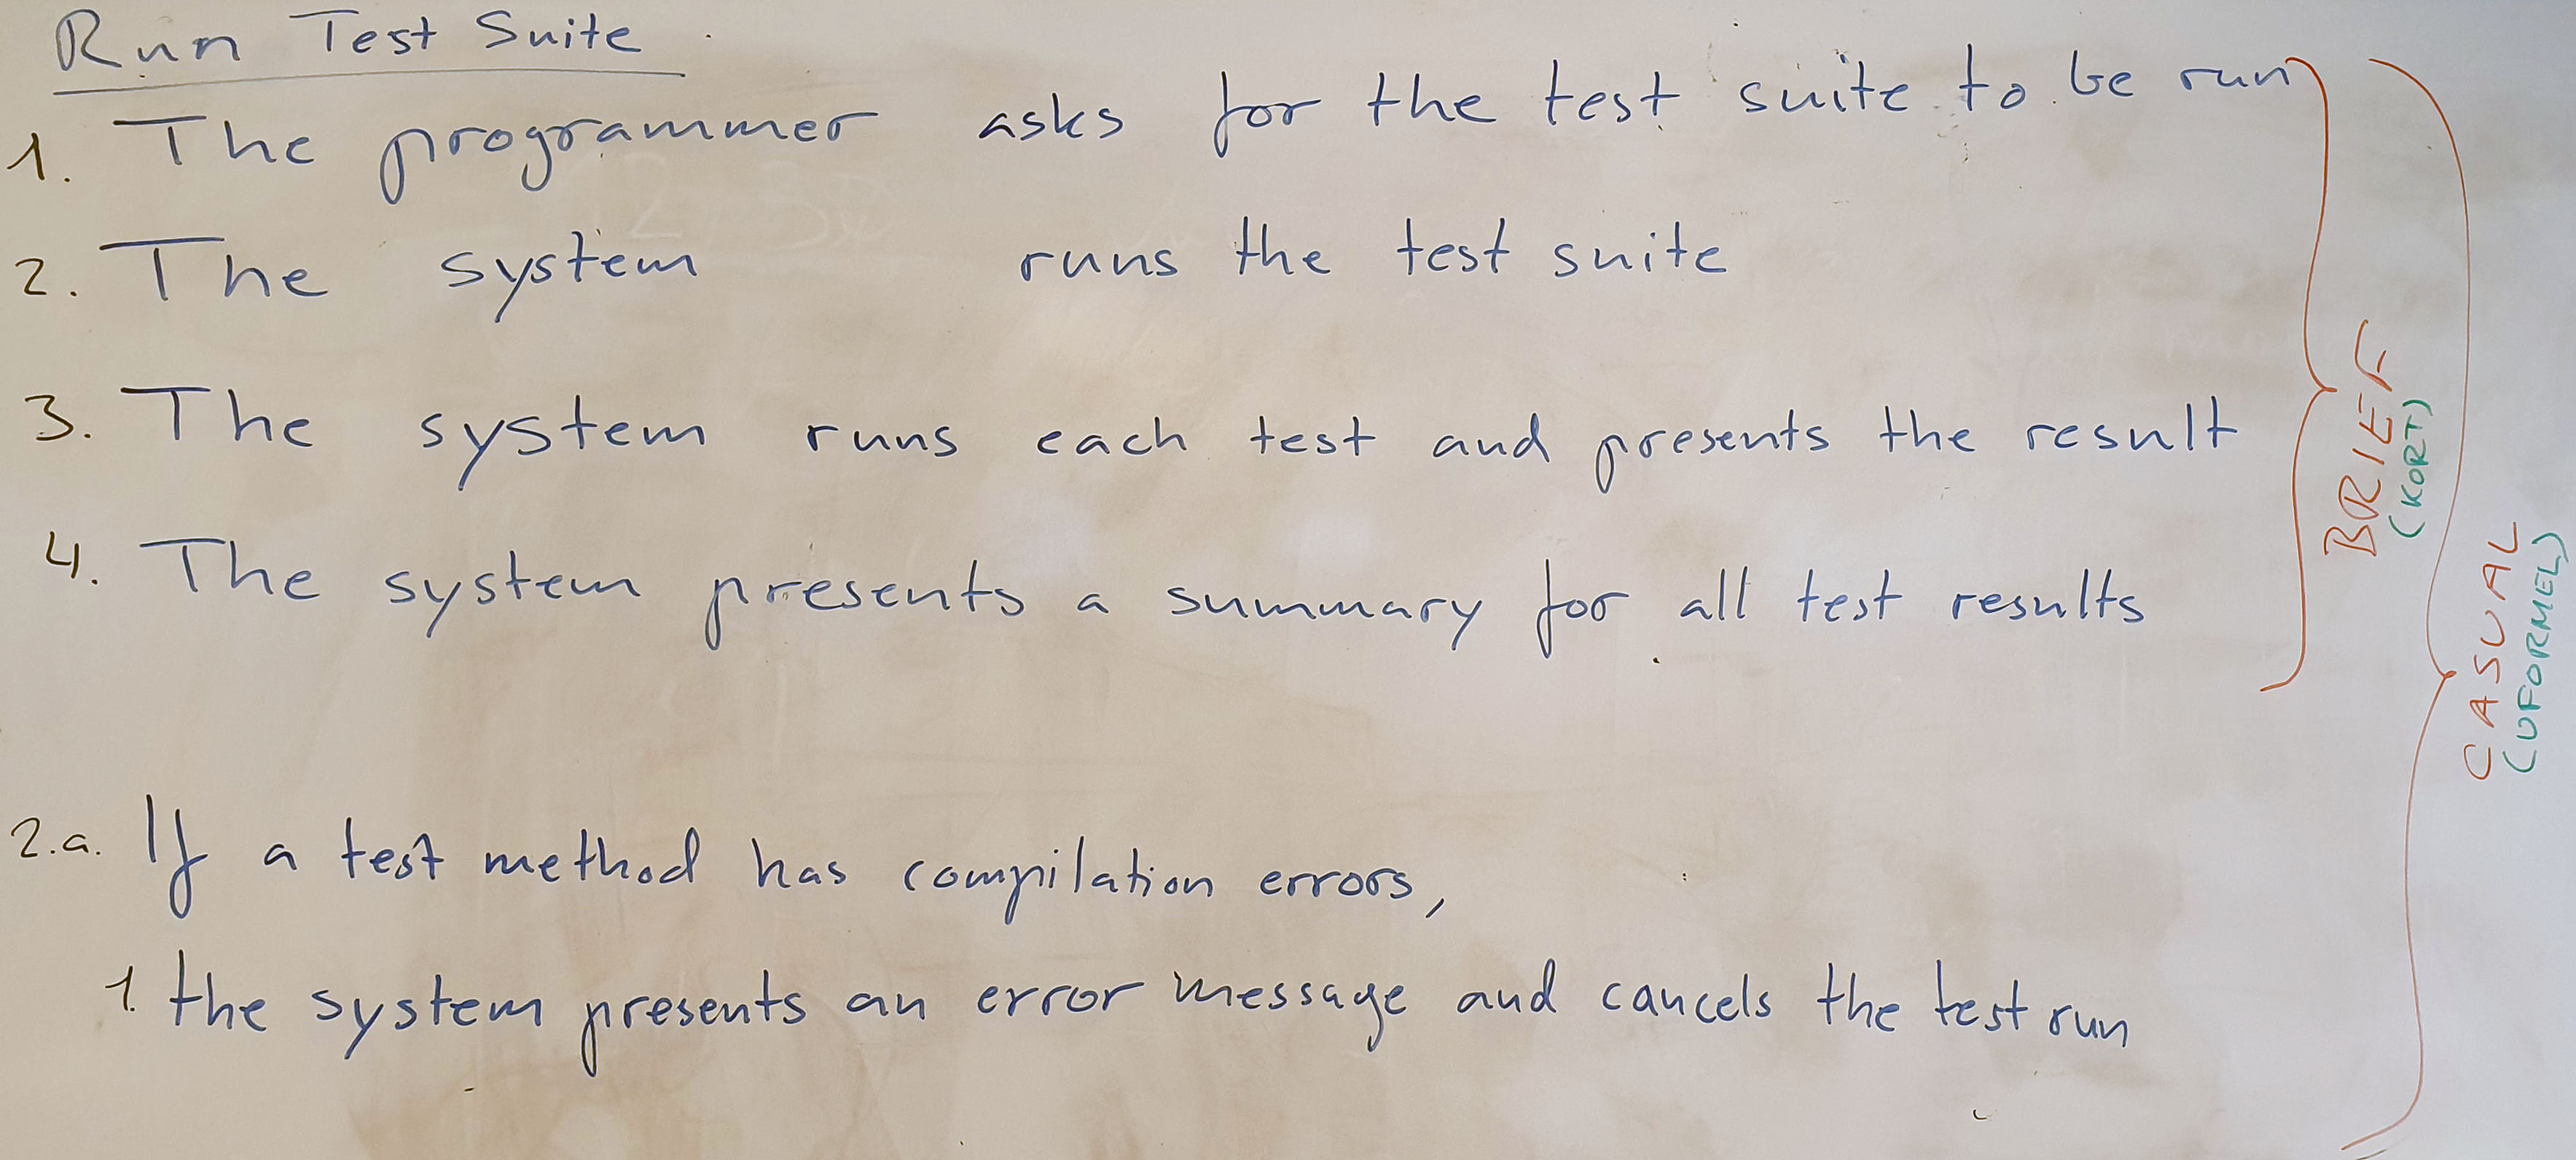 Run Test Suite
1. The programmer asks for the test suite to be run
2. The system runs the test suite
3. The system runs each test and presents the result
4. The system presents a summary for all test results
2.a. If a test method has compilation errors,
1. the system presents an error message and cancels the test run
BRIEF
(KORT)
CASUAL
(UFORMEL)